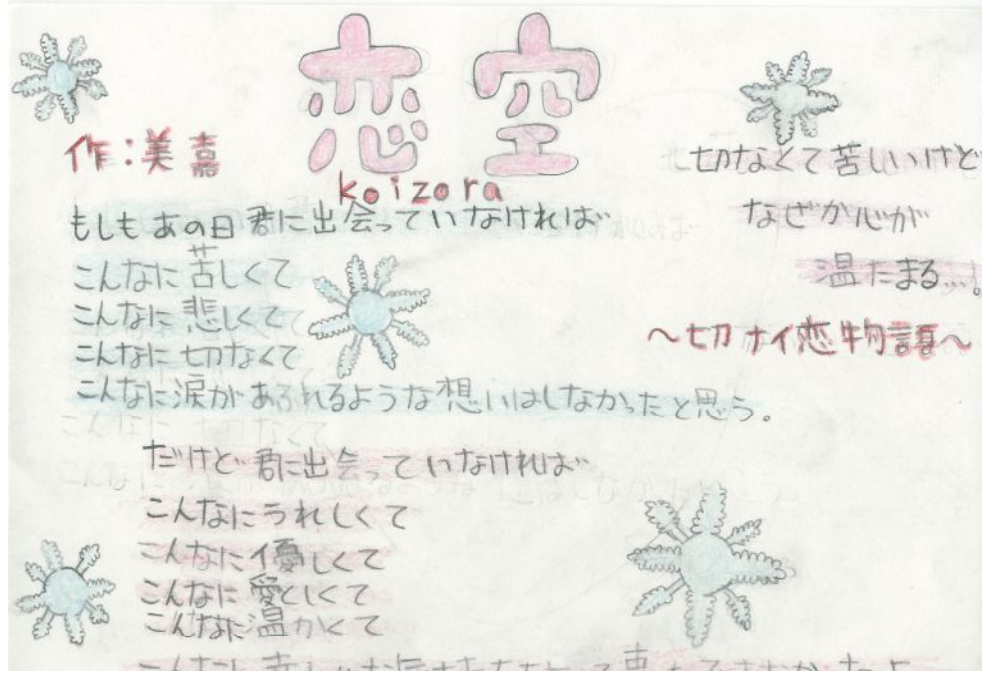 恋空
koizora
作:美嘉
切なくて苦しいけど
なぜか心が
温たまる…。
~切ナイ恋物語~
もしもあの日君に出会っていなければ
こんなに苦しくて
こんなに悲しくて
こんなに切なくて
こんなに涙があふれるような想いはしなかったと思う。
だけど君に出会っていなければ
こんなにうれしくて
こんなに優しくて
こんなに愛としくて
こんなに温かくて